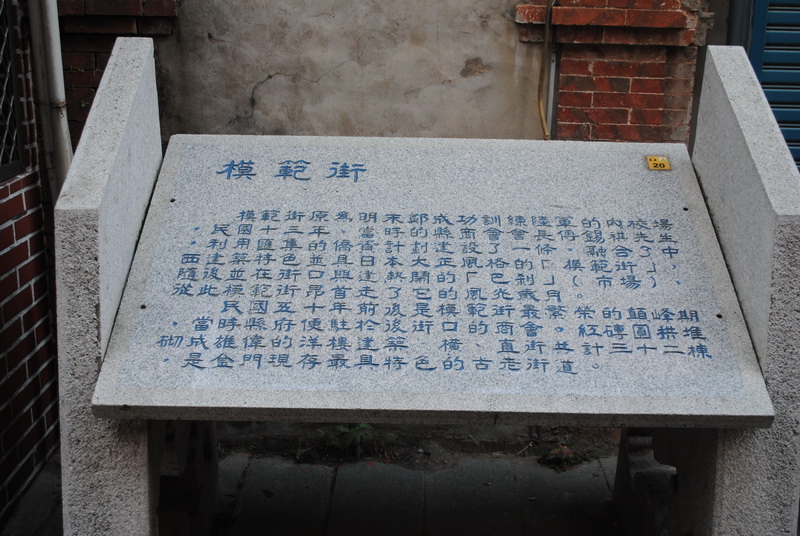 模範街
模範街原為明末鄭成功訓練陸軍的內校場
。民國十三年，當時的縣商會會長傅錫
先生，利用匯集的僑資計劃建設了一條融合了中
、西建築特色並與日本大正風格的「模範街」，
隨後並在街口興建新開的「巴剎」(市場)、
從此模範街昂首走了它的風光歲月。
民國五十年前後是模範街最繁榮的顛峰期
，當時縣府便駐於後街口的商會。紅磚圓拱堆
砌成雄偉的洋樓建築，橫、直街共計三十二棟
，是金門現存最具特色的古老街道。
20